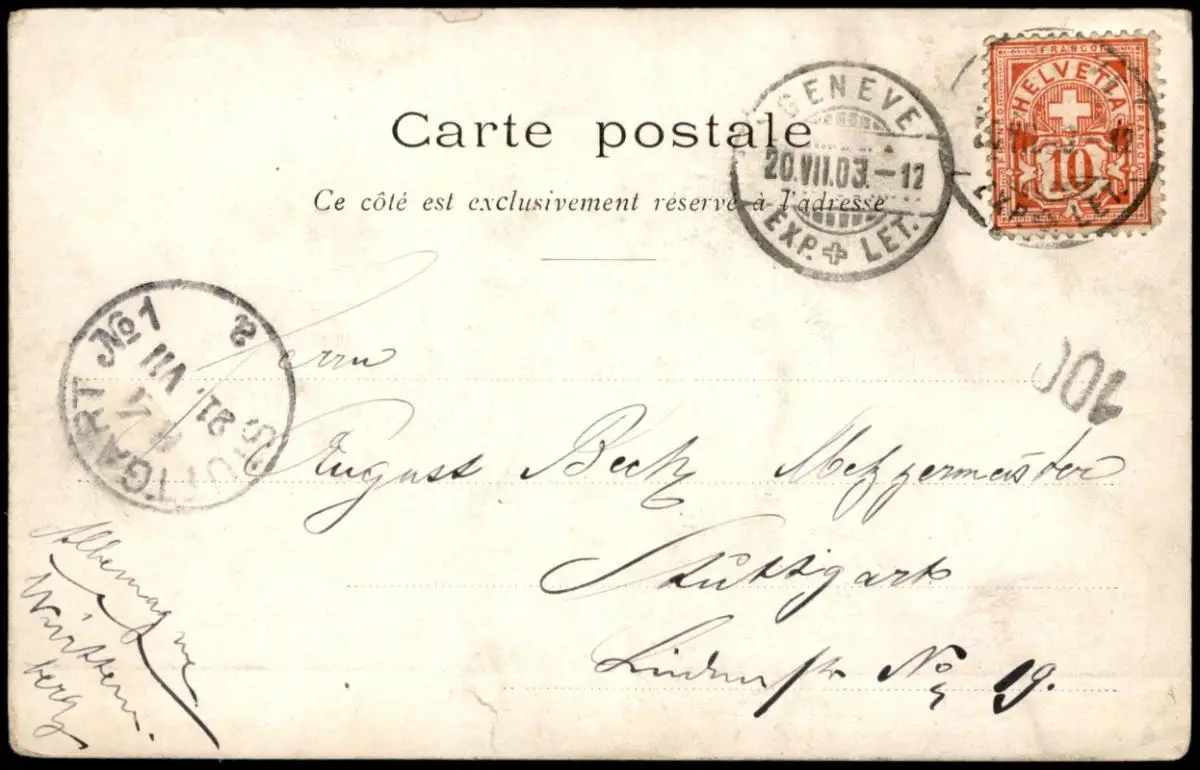 Carte postale
Ce côté est exclusivement réservé à l'adresse
GENEVE
20.VII.03.-12
EXP. + LET.
FRANCO
HELVETIA
10
STUTTGART No 1
21. VII
101
Herrn
August Beck Metzgermeister
Stuttgart
Lindenstr No 19.
Allemagne
Württem-
berg